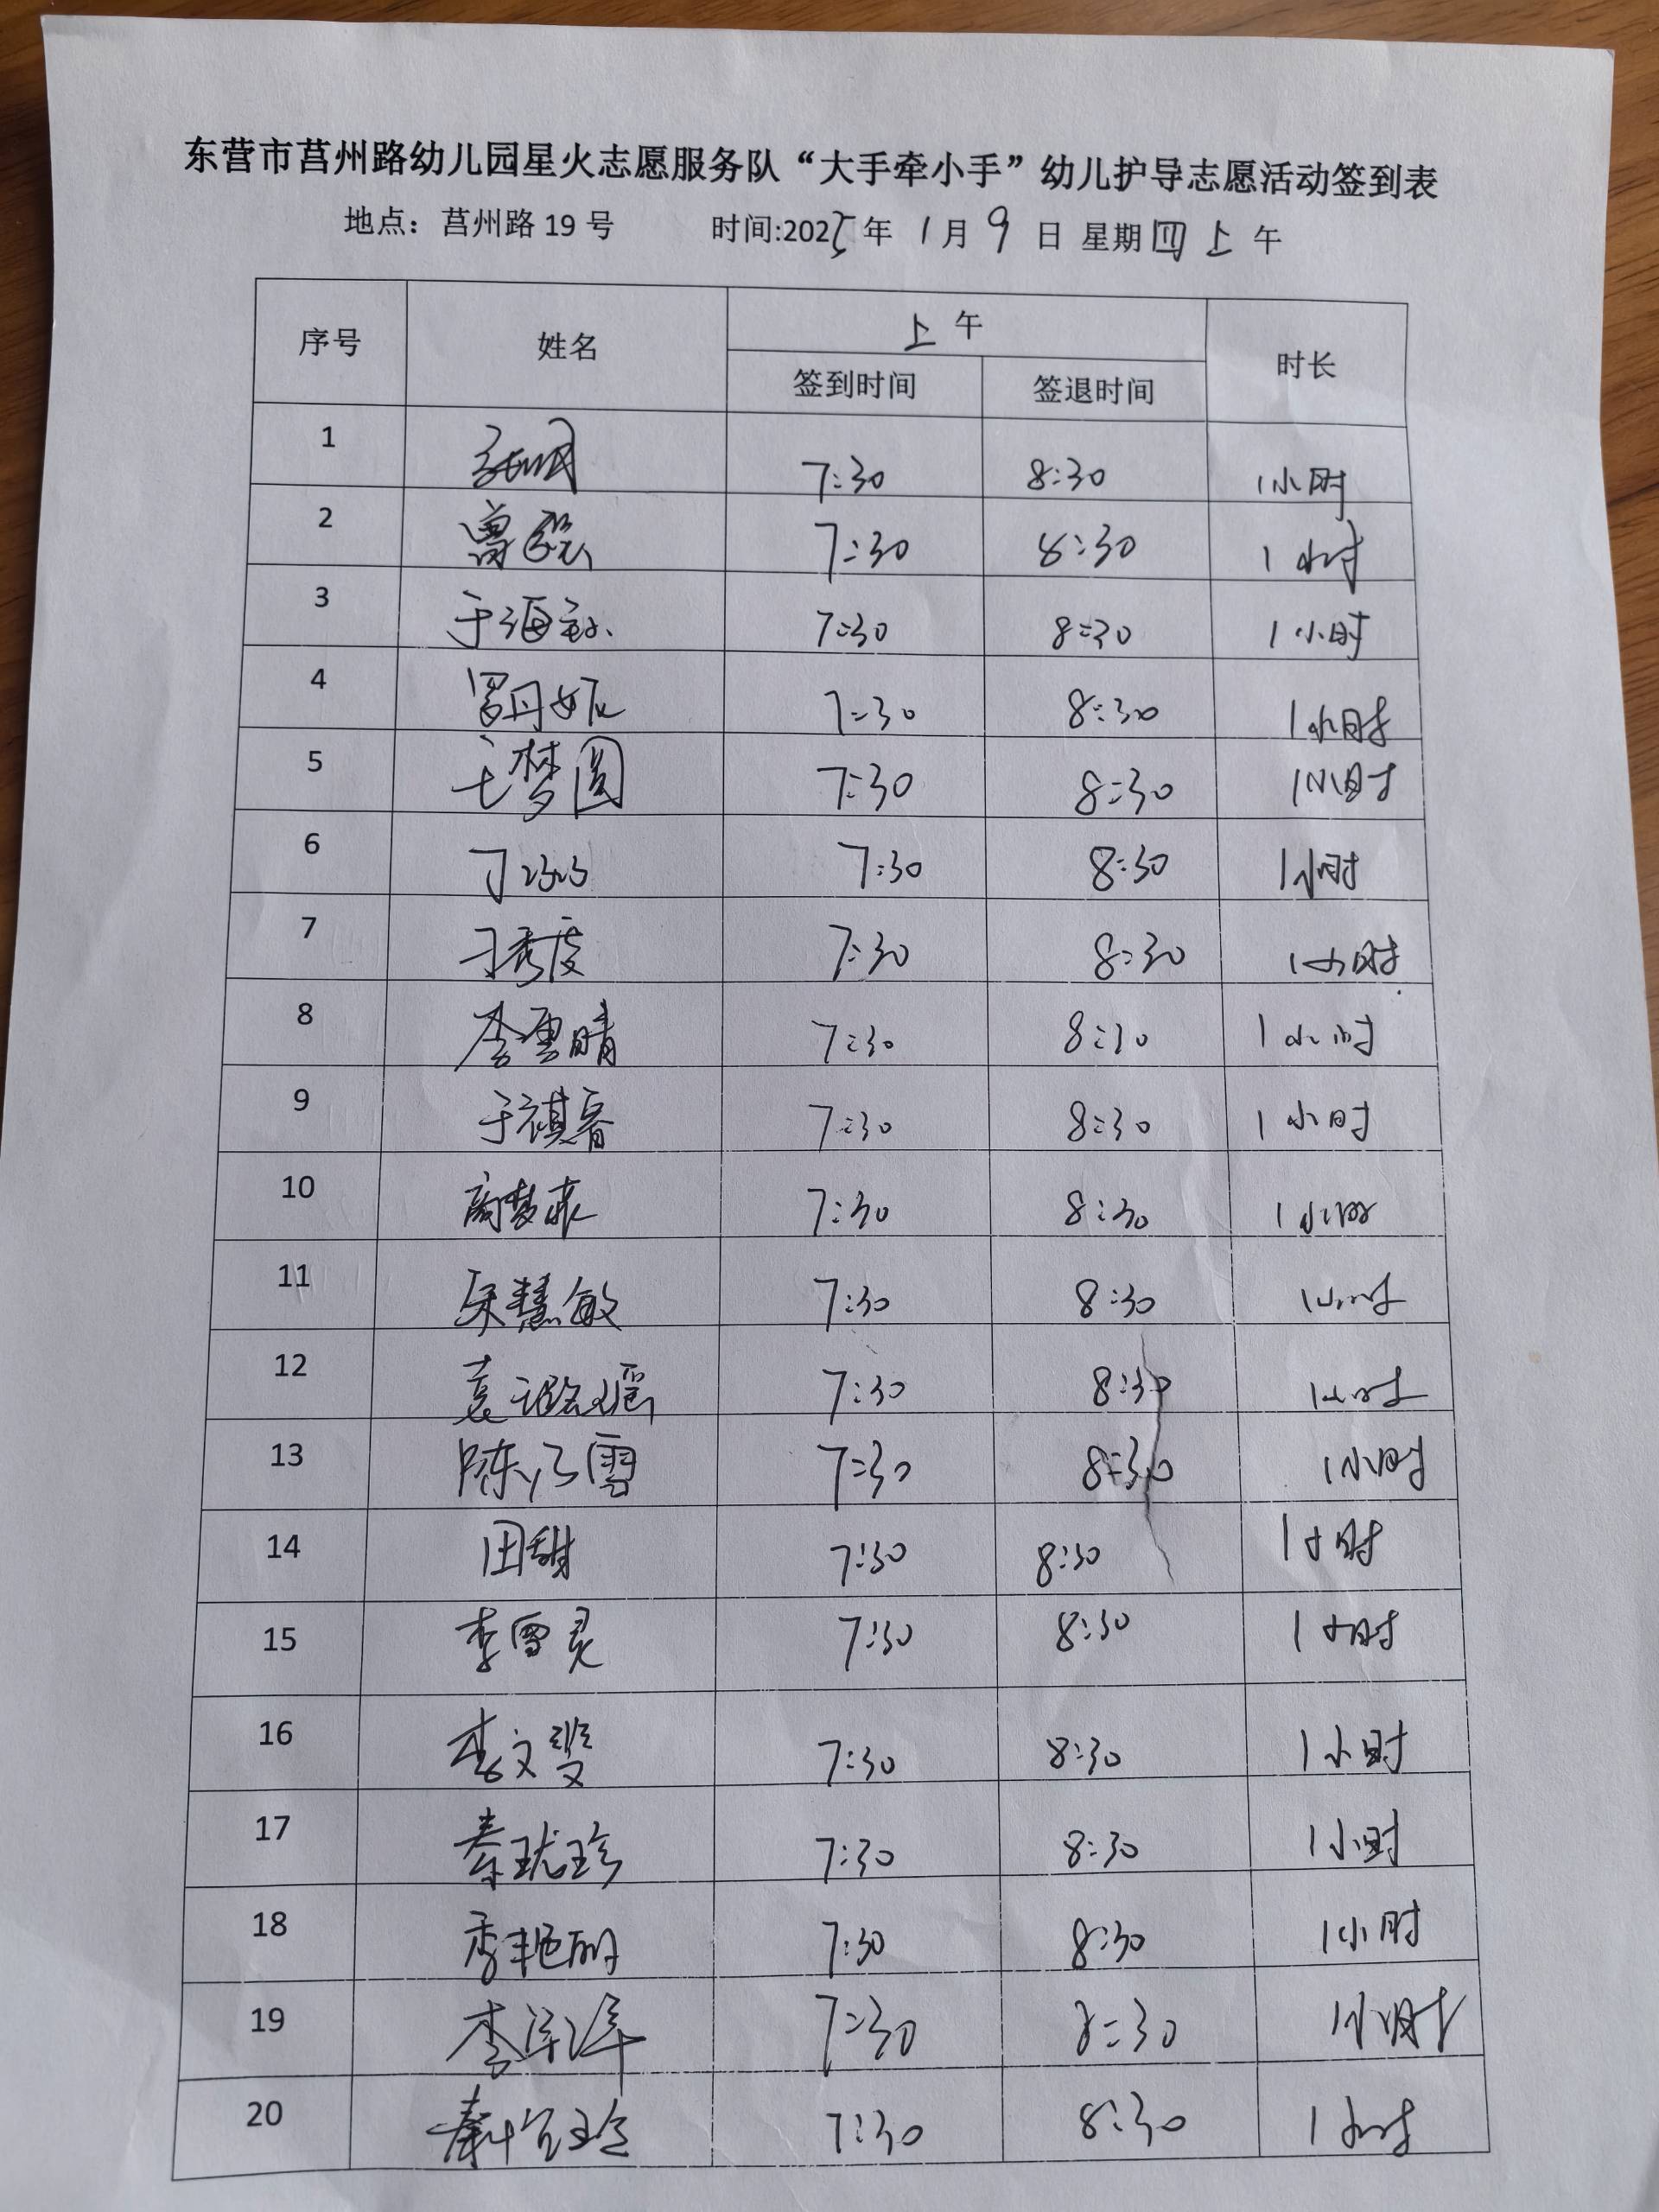 东营市莒州路幼儿园星火志愿服务队“大手牵小手”幼儿护导志愿活动签到表
地点：莒州路 19 号 时间:2025 年 1 月 9 日 星期 四 上 午
序号 姓名 上 午 时长
签到时间 签退时间
1 7:30 8:30 1小时
2 曾 7:30 8:30 1小时
3 于海 7:30 8:30 1小时
4 罗丹妮 7:30 8:30 1小时
5 王梦圆 7:30 8:30 1小时
6 丁 7:30 8:30 1小时
7 7:30 8:30 1小时
8 李雪晴 7:30 8:30 1小时
9 于祺春 7:30 8:30 1小时
10 商梦 7:30 8:30 1小时
11 宋慧敏 7:30 8:30 1小时
12 袁 瑶 7:30 8:30 1小时
13 陈 雪 7:30 8:30 1小时
14 田甜 7:30 8:30 1小时
15 李雪灵 7:30 8:30 1小时
16 李文 7:30 8:30 1小时
17 秦珑珍 7:30 8:30 1小时
18 李艳丽 7:30 8:30 1小时
19 李 7:30 8:30 1小时
20 秦 7:30 8:30 1小时